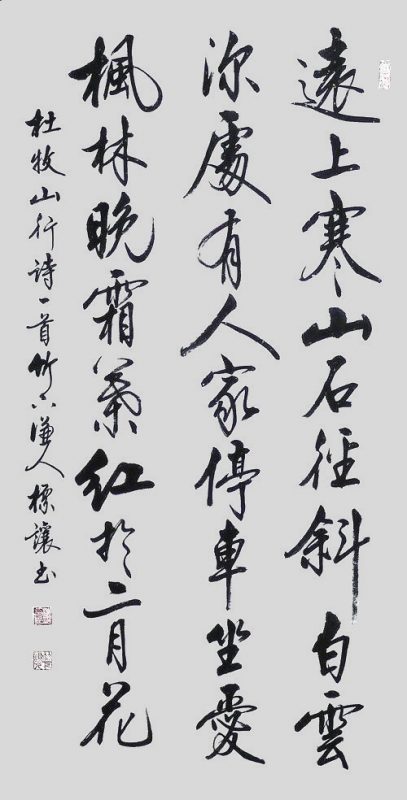 遠上寒山石徑斜白雲
深處有人家停車坐愛
楓林晚霜葉紅於二月花
杜牧山行詩一首竹下謙人標讓書